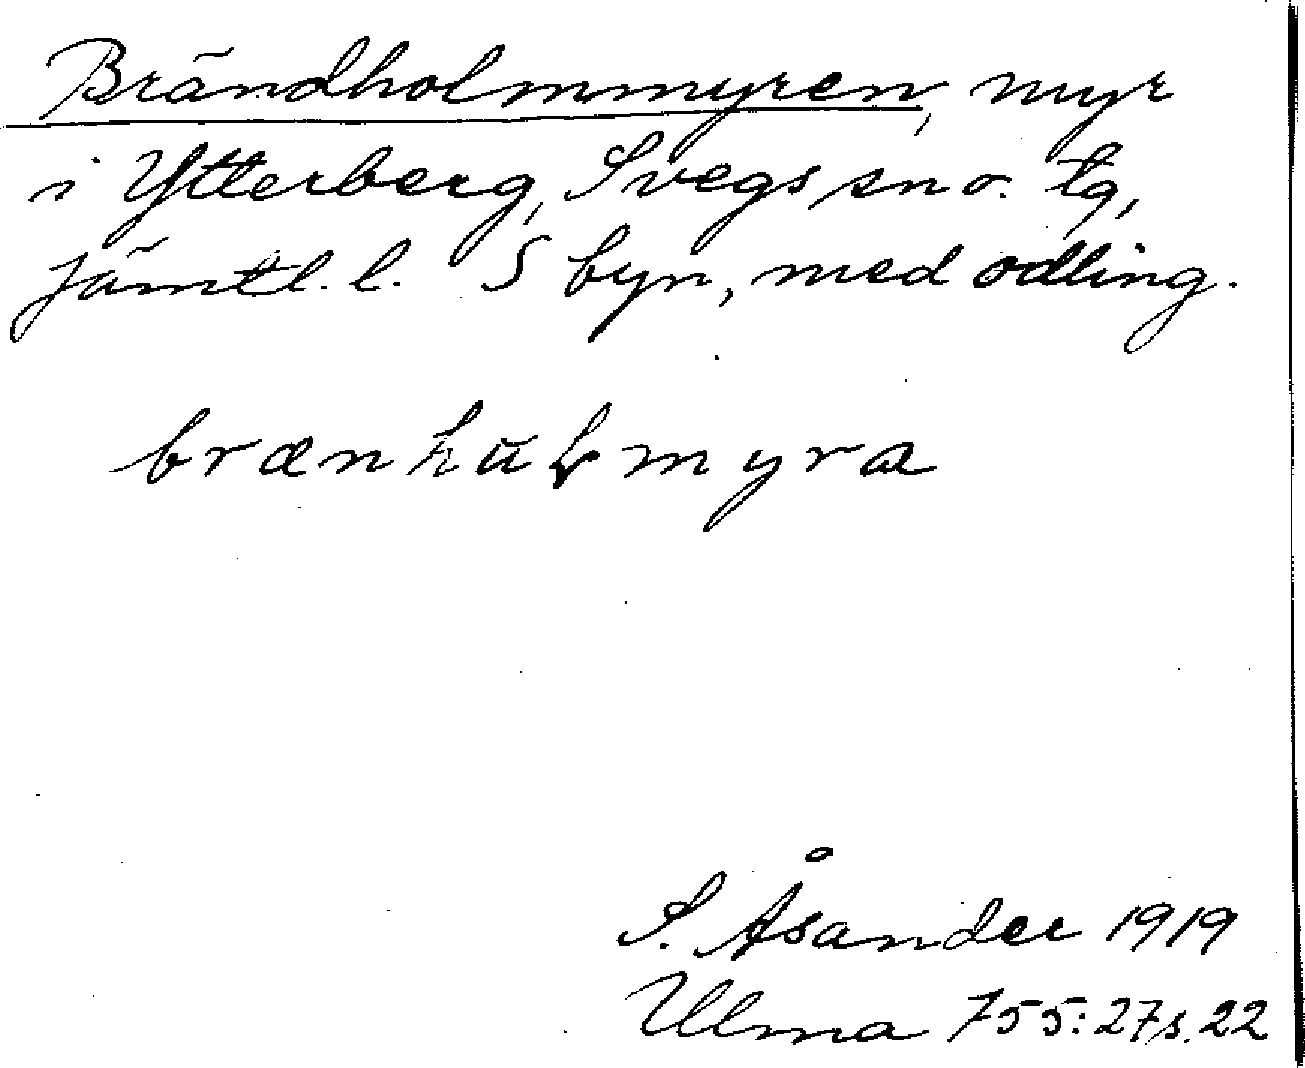 Brändholmmyren, myr
i Ytterberg, Svegs sn o. tg,
Jämtl. l. S byn, med odling.
S. Åsander 1919
Ulma 755:27 s. 22